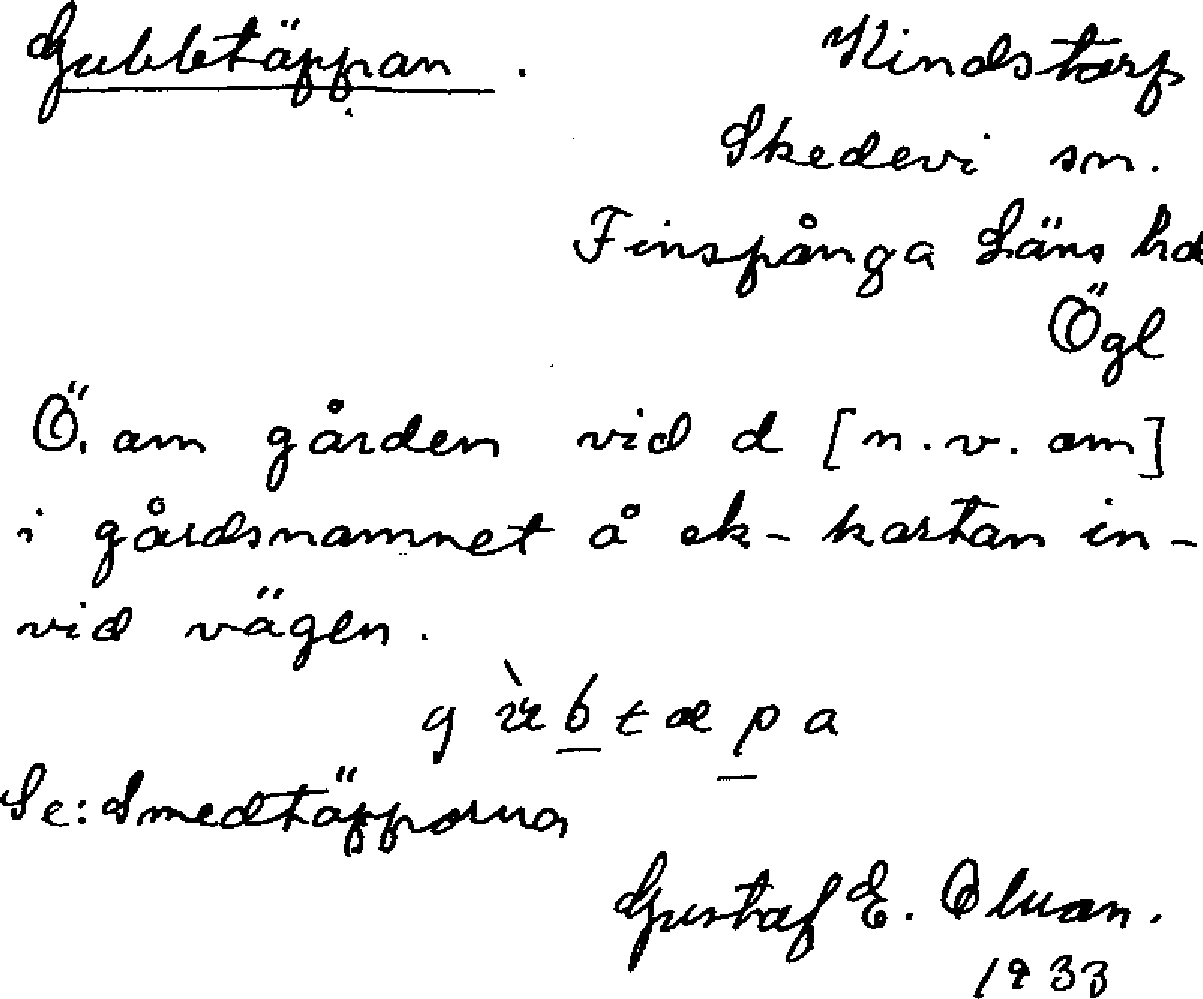 Gubbtäppan.
Kindstorp
Skedevi sn.
Finspånga Läns hd
Ögl
Ö. om gården vid d [n.v. om]
i gårdsnamnet å ek-kartan in-
vid vägen.
Se: Smedtäpporna
Gustaf E.
1933